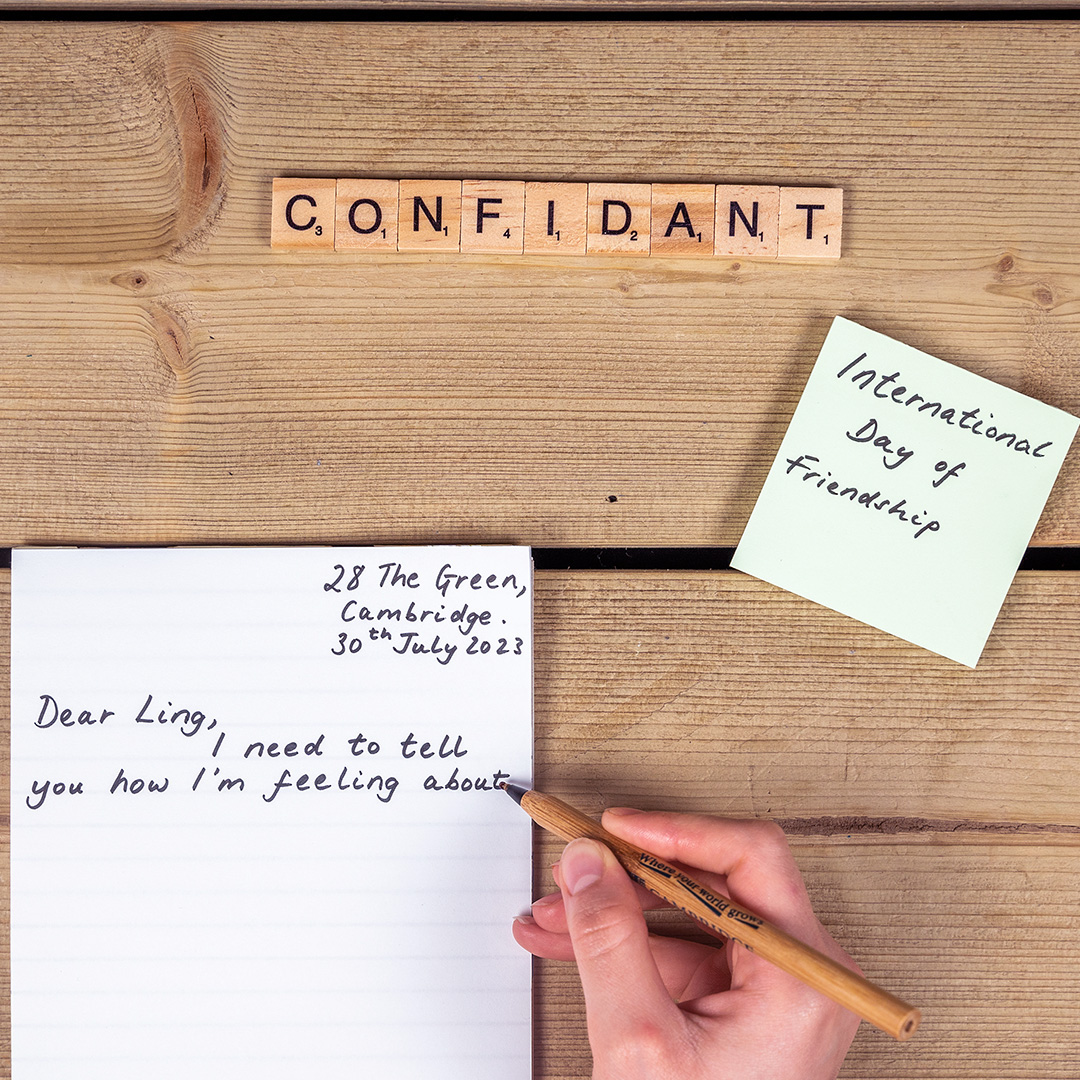 CONFIDANT
3 1 1 4 1 2 1 1 1
International
Day of
Friendship
28 The Green,
Cambridge.
30th July 2023
Dear Ling,
I need to tell
you how I'm feeling about
Where your world grows